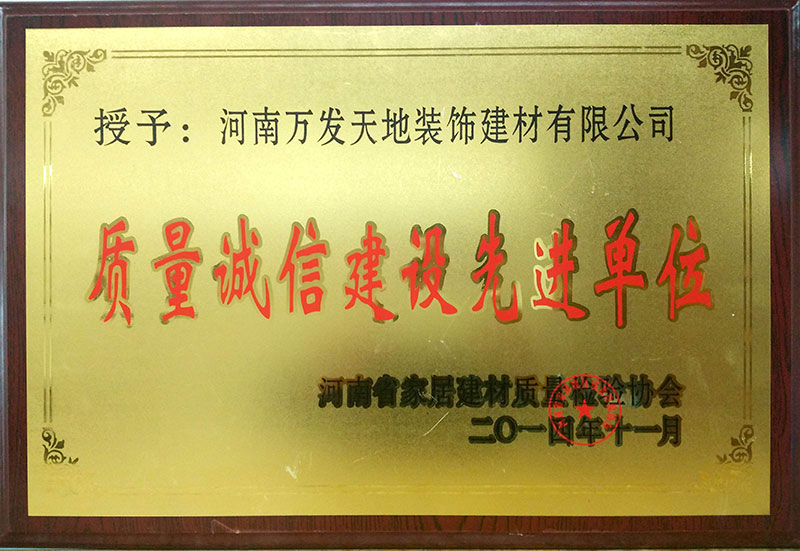 授予：河南万发天地装饰建材有限公司
质量诚信建设先进单位
河南省家居建材质量检验协会
二〇一四年十一月